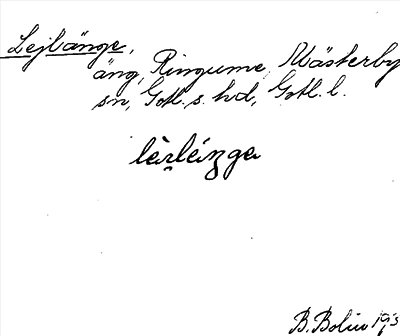 Lejlänge,
äng, Ringume, Mästerby
sn, Gotl. s. hd, Gotl. l.
lèrlénga
B. Bolin